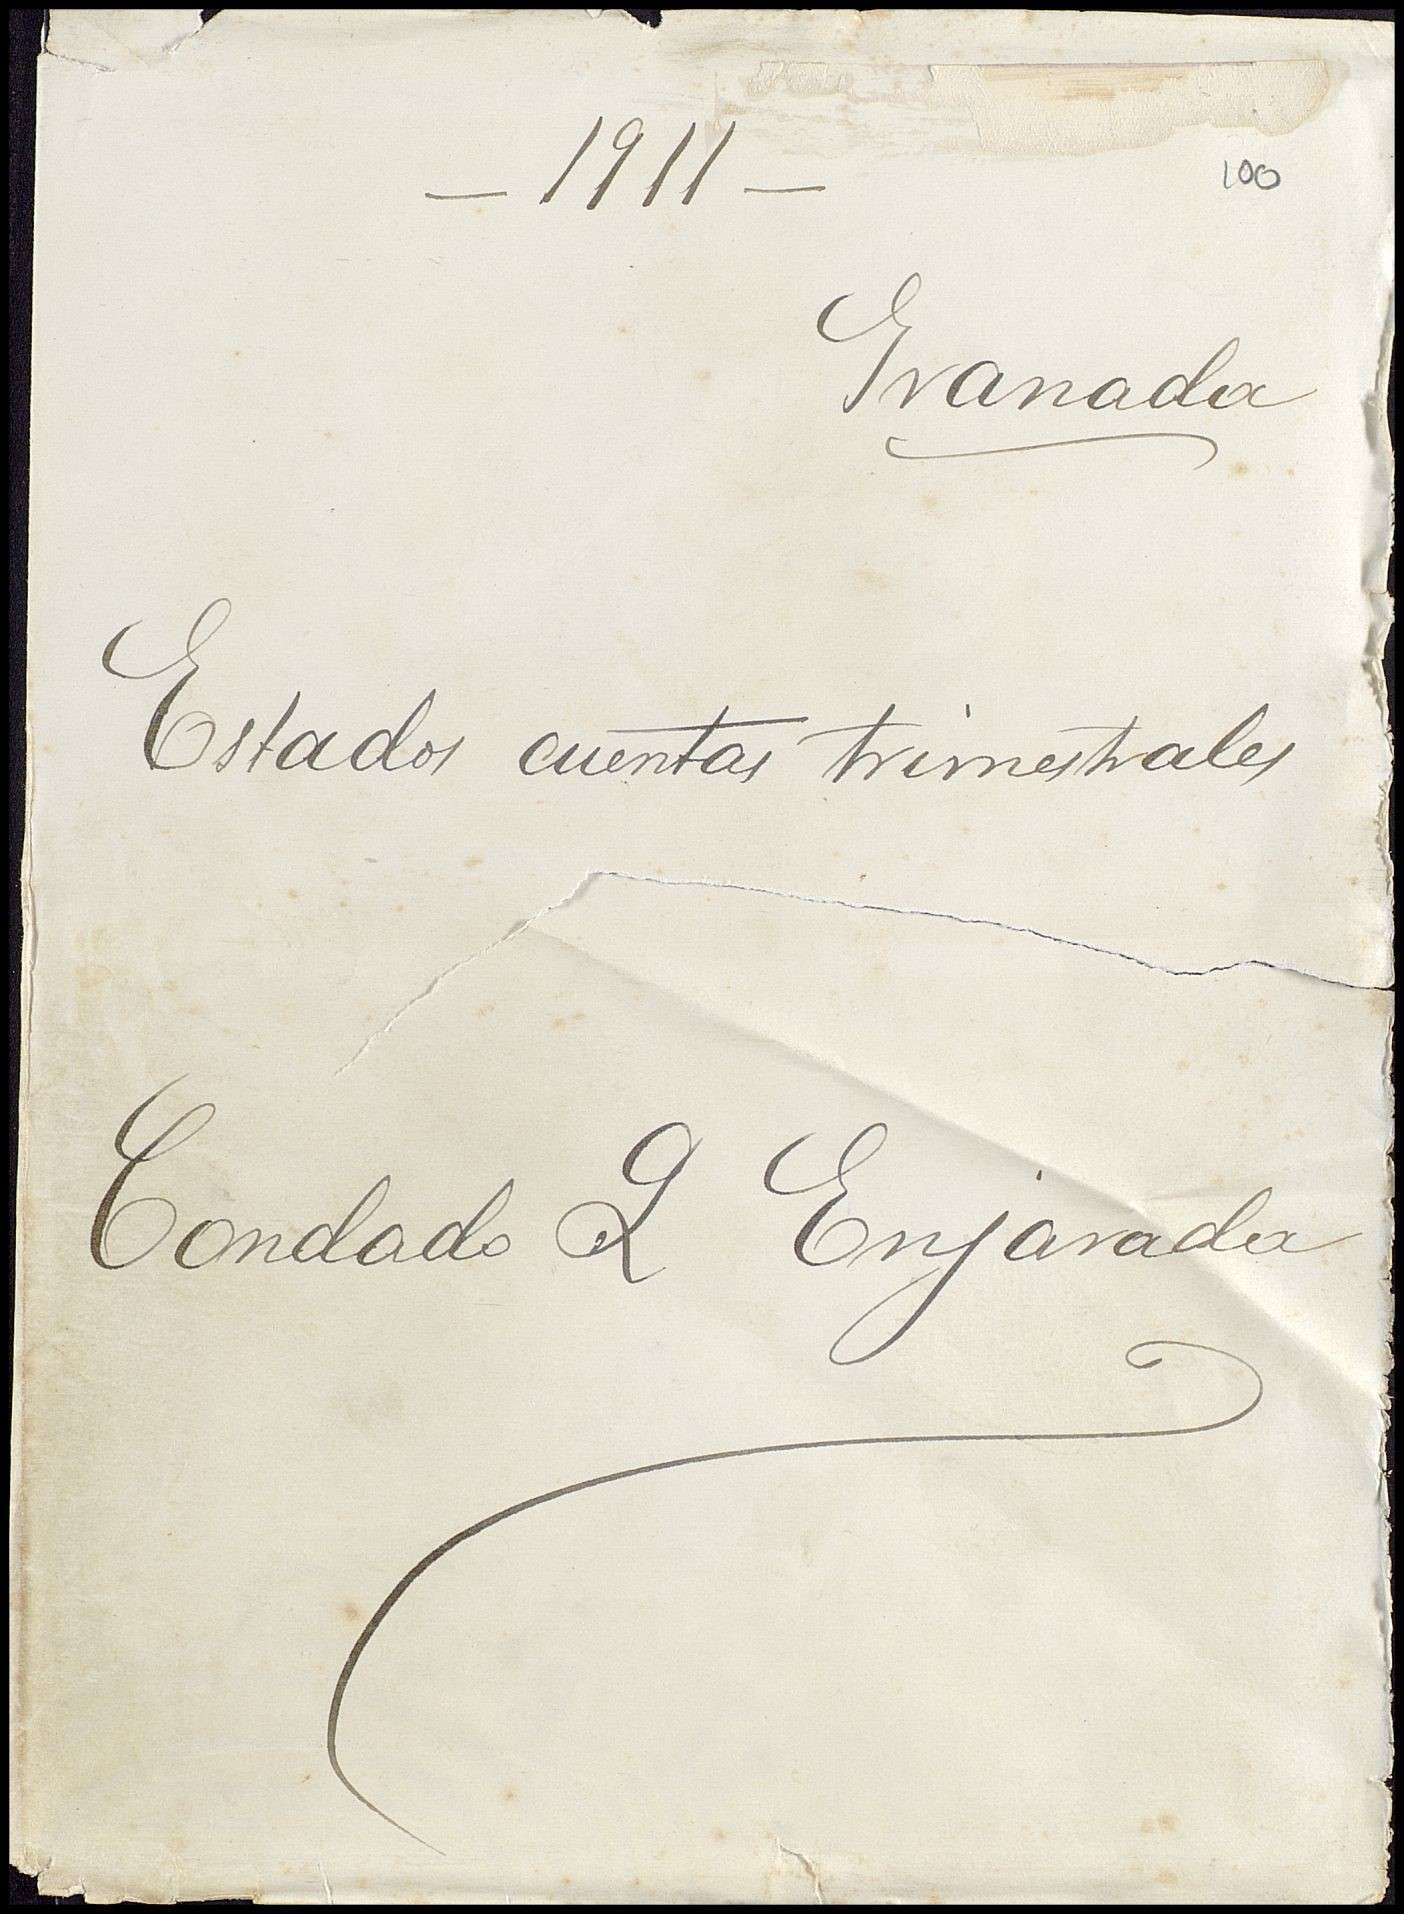 — 1911 —
100
Granada
Estados cuentas trimestrales
Condado L Enjarada